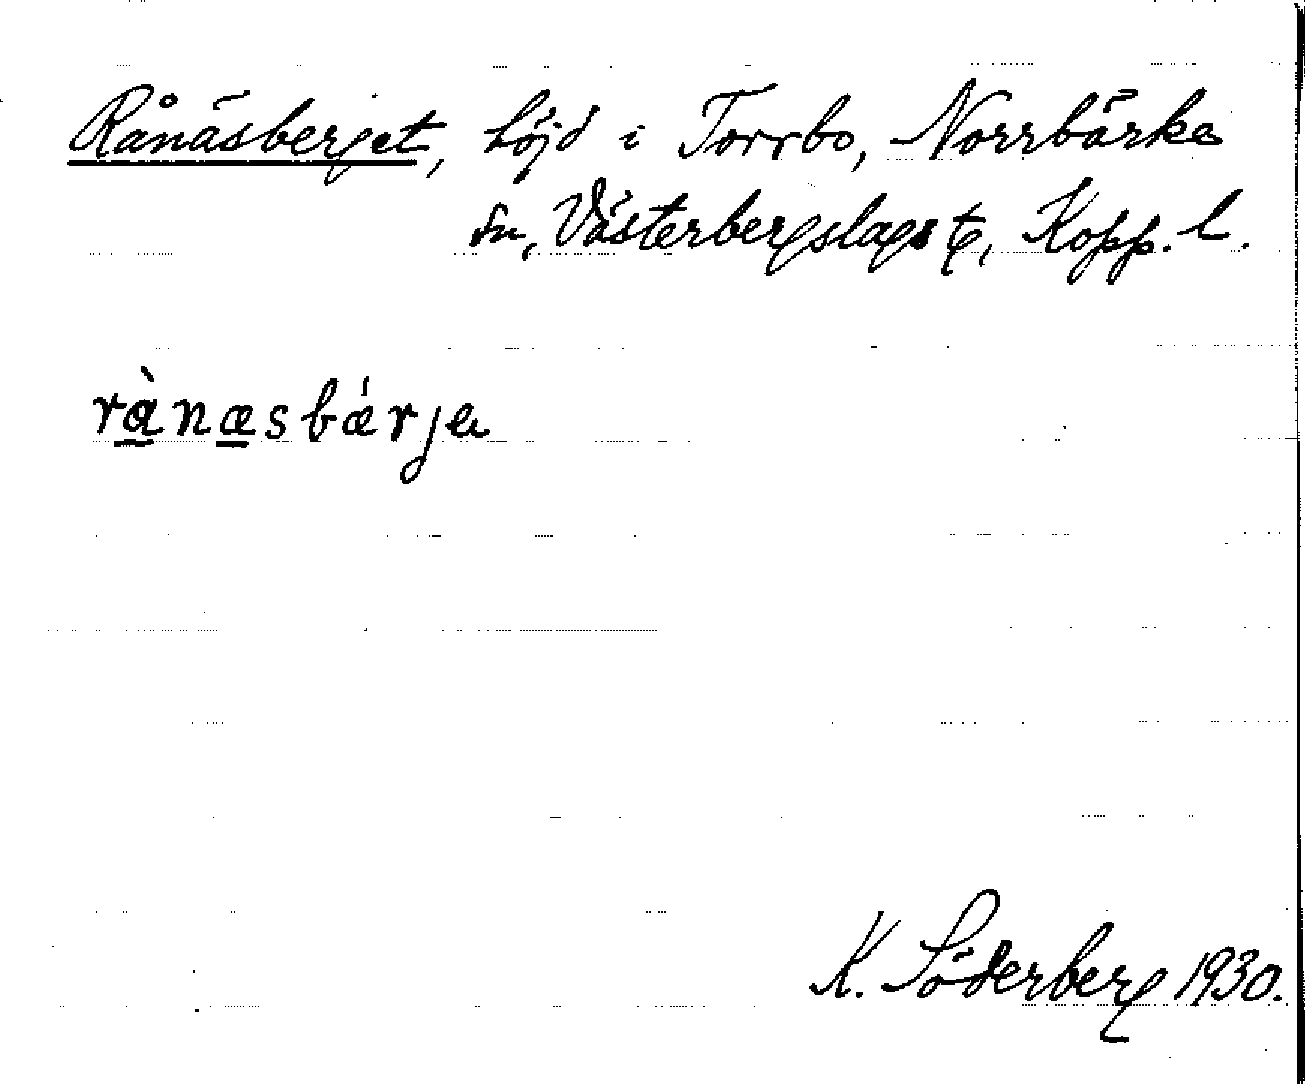 Rånäsberget, höjd i Torrbo, Norrbärke
sn, Västerbergslags t, Kopp. l.
rànæsbǽrja
K. Söderberg 1930.